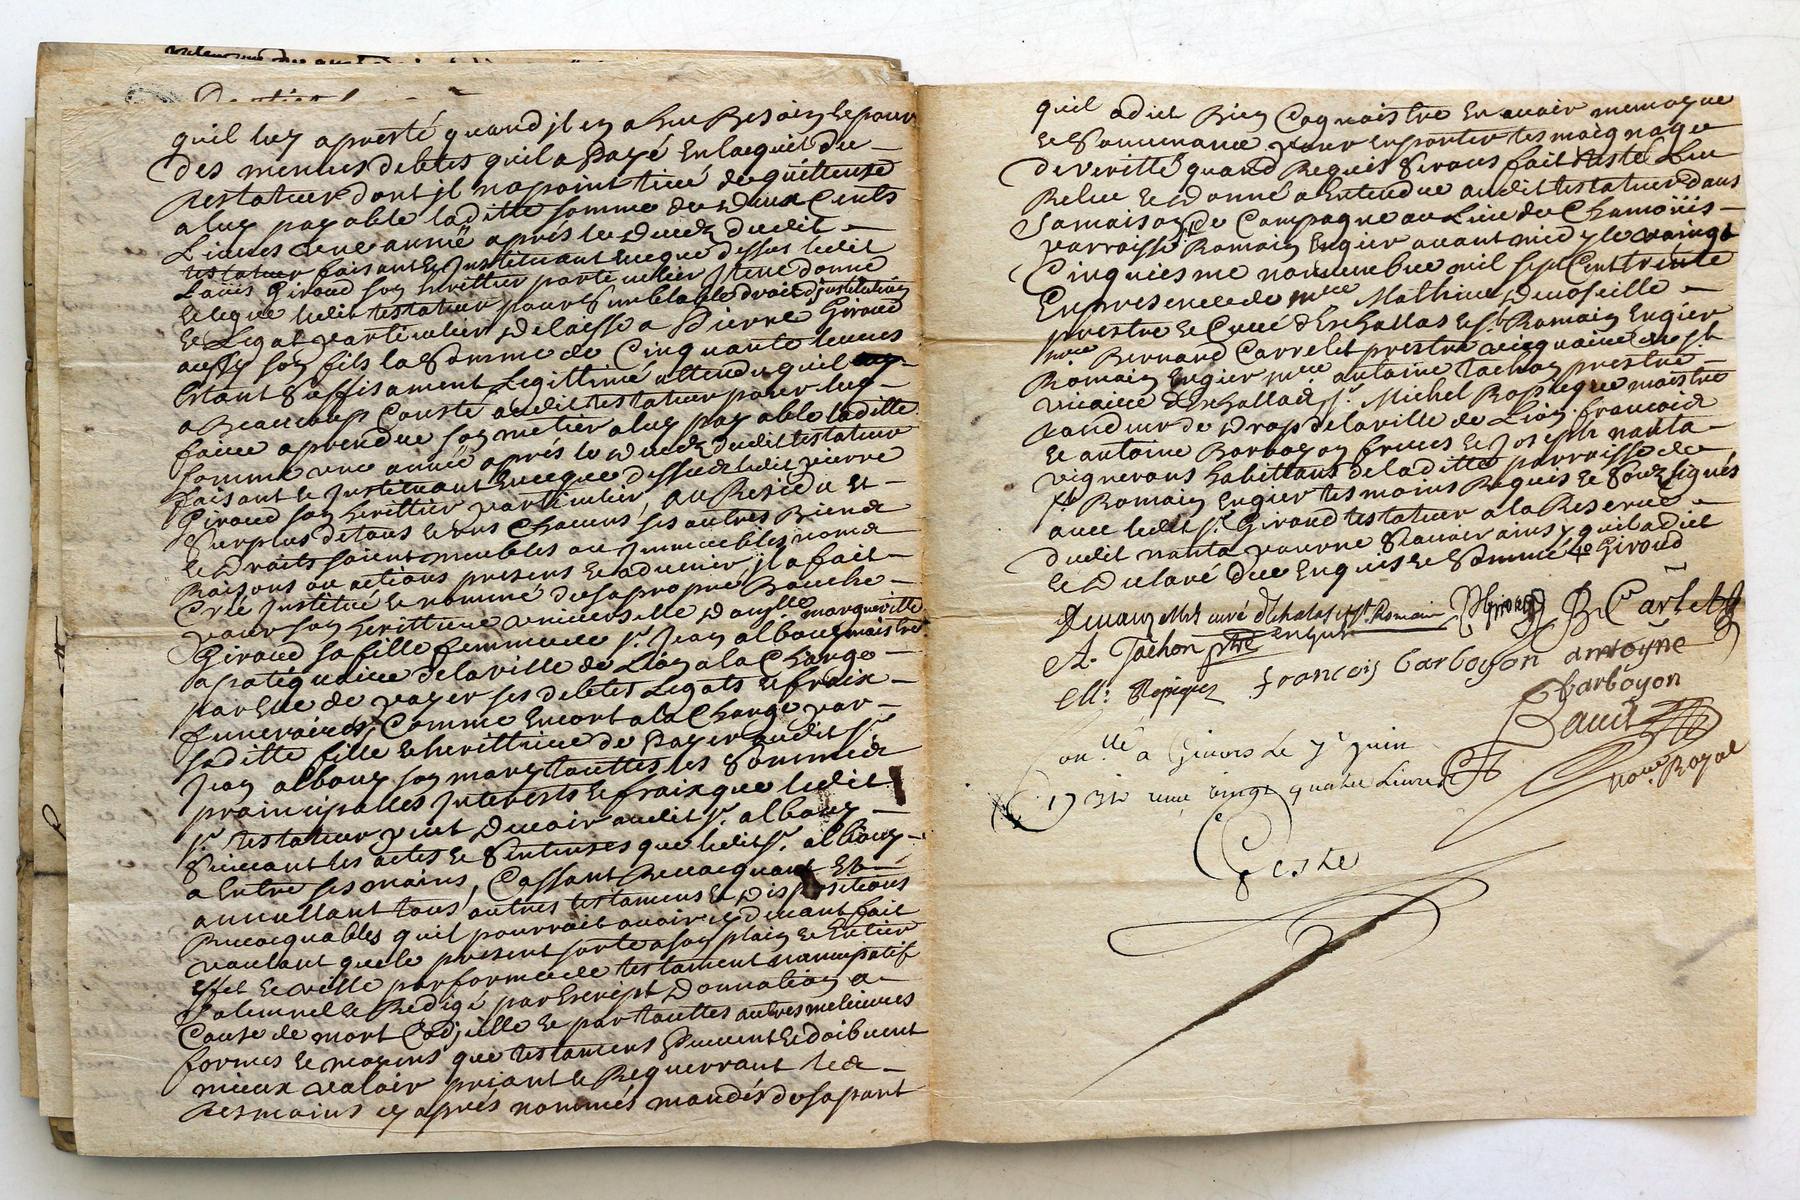 quil luy apresté quand jl en a heu Besoin et pour
des menües debtes quil a payé En lacquit du
testateur dont jl na point tiré de quittense
a luy payable laditte somme de Deux Cents
Livres une anné apres le Decez dudit
testateur faisant et Instituant avecque dessus ledit
Loüis Giroud son herittier particulier Item donne
et legue ledit testateur pour semblable droit djnstitution
et Legat particulier Delaisse a Pierre Giroud
aussy son fils la Somme de Cinquante livres
Estant Suffisament Legittimé attendu quil
a Beaucoup Cousté audit testateur pour luy
faire aprendre son metier a luy payable laditte
somme une anné aprés le Decez dudit testateur
faisant et Instituant avecque dessus ledit pierre
Giroud son herittier particulier, Au Residu et
Surplus de tous et uns Chacuns ses autres Biens
et droits soient meubles ou Immeubles noms
Raisons ou actions presens et advenir jl a fait
Creé Jnstitué et nommé de sa propre Bouche
pour son herittiere universelle Damlle margueritte
Giroud sa fille femme de Sr. Jean albouy maistre
apatequaire de la ville de Lion a la Charge
par Elle de payer ses debtes Legats et fraix
funeraires, Comme Encor a la Charge par
saditte fille et herittiere de payer audit Sr.
Jean albouy son mary touttes les Sommes
prainsipalles Interests et fraix que ledit
Sr. testateur peut Devoir audit Sr. albouy
Suivant les actes et Sentenses que ledit Sr. albouy
a Entre ses mains, Cassant Revocquant Et
annullant tous autres testamens et Dispositions
Revocquables quil pourrait avoir cy devant fait
voulant que le present sorte a son plain et Entier
effet et vaille par forme de testament nuncupatif
solemnel et Redigé par Escript Donnation a
Cause de mort Codicille et par touttes autres melieures
formes et moyens que testamens peuvent et doibvent
mieux valoir priant et Requerrant les
tesmoins cy aprés nommés mandés de sa part
quil a dict Bien Cognaistre En avoir memoyre
et Souvenance pour En porter tesmoignage
de veritté quand Requis Seront fait testé Leu
Releu et donné a Entendre audit testateur dans
sa maison de Campagne au Lieu de Chamoüis
parroisse St Romain En gier avant midy le vaingt
Cinquiesme novembre mil sept Cent trente
En presence de mre Mathieu Demoseille
prestre et Curé dEschallas et St. Romain En gier
mre Bernard Carrelet prestre vicquaire de St
Romain En gier mre antoine tachon prestre
vicaire dEschallas Sr. Michel Ropicque maistre
tondeur de Drap de la ville de Lion françois
et antoine Barboyon freres et Joseph nanta
vignerons habittans de laditte parroisse de
St Romain En gier tesmoins Requis et Sousignés
avec ledit Sr. Giroud testateur a la Reserve
dudit nanta pour ne Scavoir ainsy quil a dict
et Declaré de ce Enquis et Sommé Giroud
curé dEchalas et St. Romain Engier Giroud B. Carlet
A. Tachon ptre
M. Ropique françois barboyon antoyne
barboyon
nore. Royal
Conlle a Givors Le 7e juin
1731 reçu vingt quatre Livres
Geste